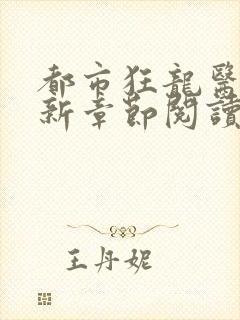 都市狂龍醫
新章節閱讀
王丹妮